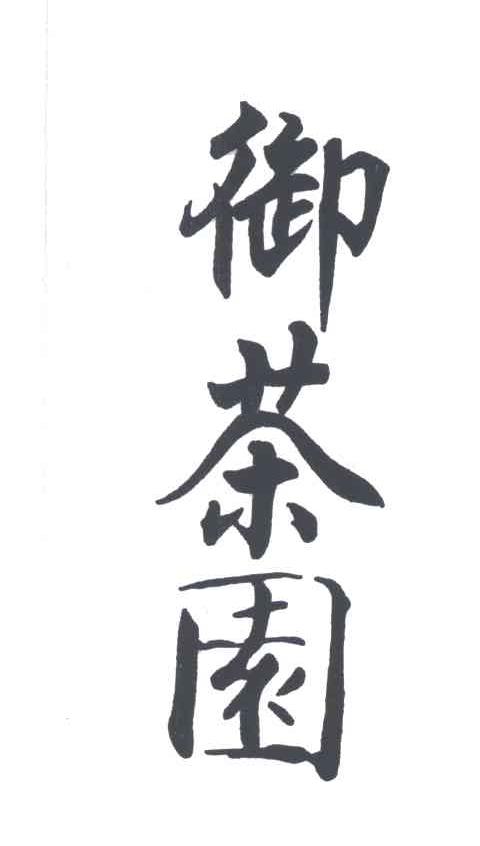 御茶園